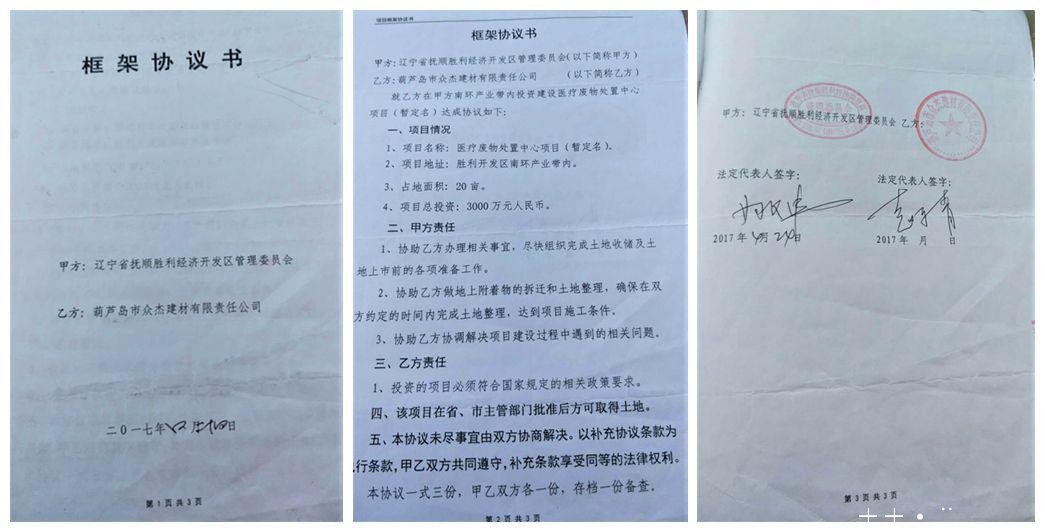 框架协议书
甲方：辽宁省抚顺胜利经济开发区管理委员会
乙方：葫芦岛市众杰建材有限责任公司
二〇一七年四月二十四日
第1页共3页
项目框架协议书
框架协议书
甲方：辽宁省抚顺胜利经济开发区管理委员会（以下简称甲方）
乙方：葫芦岛市众杰建材有限责任公司 （以下简称乙方）
就乙方在甲方南环产业带内投资建设医疗废物处置中心
项目（暂定名）达成协议如下：
一、项目情况
1、项目名称：医疗废物处置中心项目（暂定名）。
2、项目地址：胜利开发区南环产业带内。
3、占地面积：20亩。
4、项目总投资：3000万元人民币。
二、甲方责任
1、协助乙方办理相关事宜，尽快组织完成土地收储及土
地上市前的各项准备工作。
2、协助乙方做地上附着物的拆迁和土地整理，确保在双
方约定的时间内完成土地整理，达到项目施工条件。
3、协助乙方协调解决项目建设过程中遇到的相关问题。
三、乙方责任
1、投资的项目必须符合国家规定的相关政策要求。
四、该项目在省、市主管部门批准后方可取得土地。
五、本协议未尽事宜由双方协商解决。以补充协议条款为
行条款，甲乙双方共同遵守，补充条款享受同等的法律权利。
本协议一式三份，甲乙双方各一份，存档一份备查。
第2页共3页
甲方：辽宁省抚顺胜利经济开发区管理委员会 乙方：
法定代表人签字： 法定代表人签字：
2017年4月24日 2017年 月 日
第3页共3页